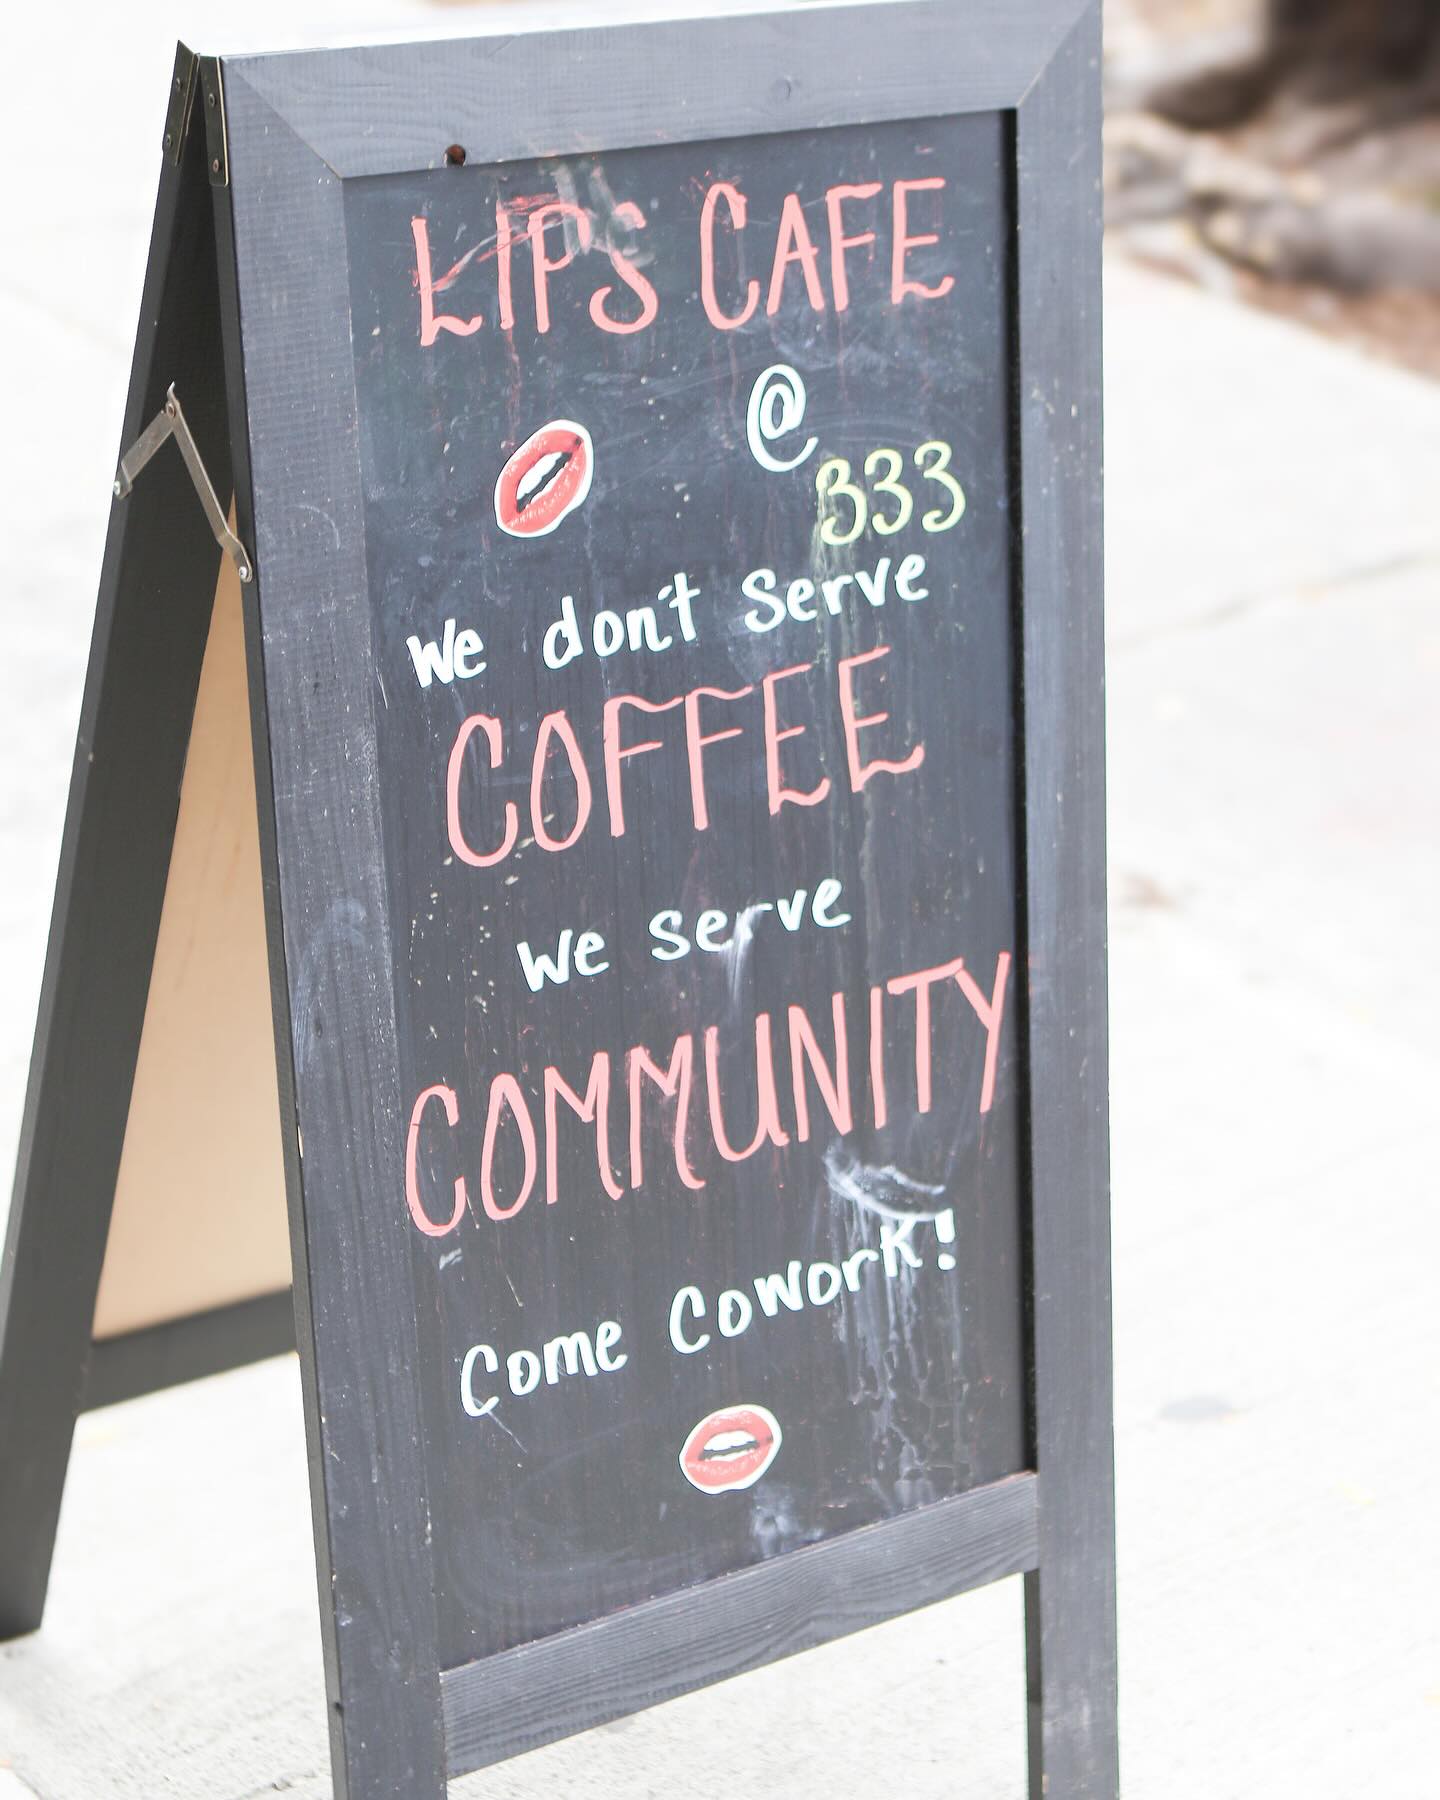 LIPS CAFE
@
333
We don't serve
COFFEE
We serve
COMMUNITY
Come Cowork!